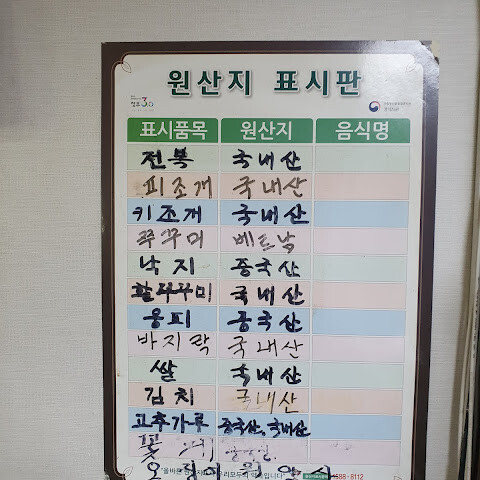 원산지 표시판
정부3.0
표시품목 원산지 음식명
전복 국내산
피조개 국내산
키조개 국내산
쭈꾸미 베트남
낙지 중국산
활쭈꾸미 국내산
웅피 중국산
바지락 국내산
쌀 국내산
김치 국내산
고추가루 중국산, 국내산
꽃
588-8112